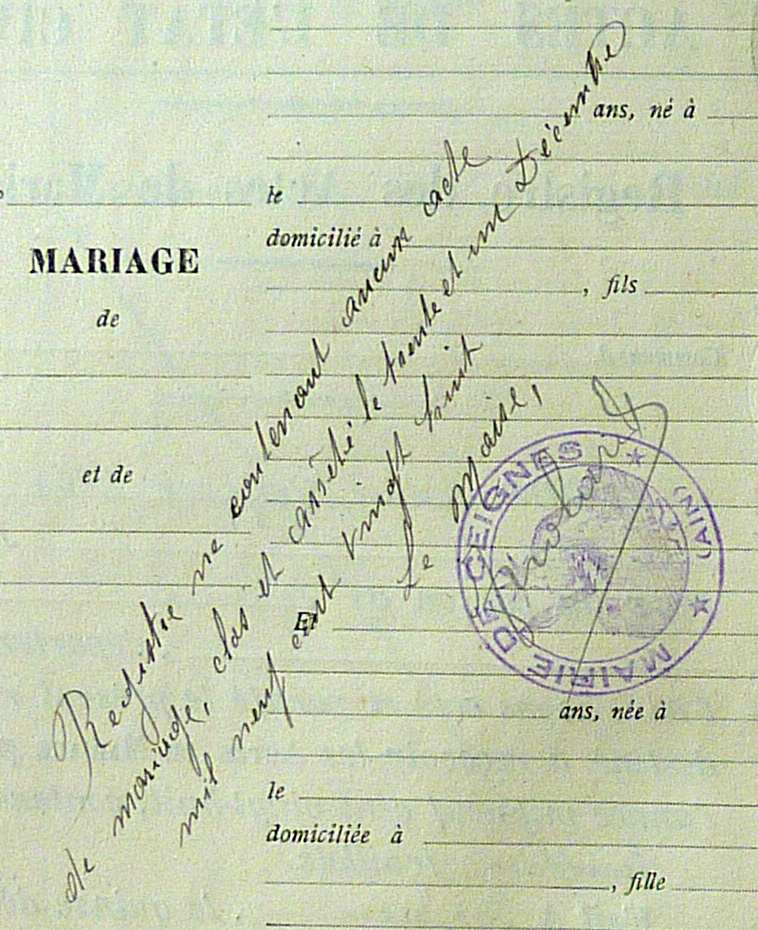 ans, né à
le
domicilié à
, fils
MARIAGE
de
et de
Registre ne contenant aucun acte
de mariage, clos et arrêté le trente et un Décembre
mil neuf cent vingt huit
Le Maire,
MAIRIE DE CEIGNES
(AIN)
Et
ans, née à
le
domiciliée à
, fille